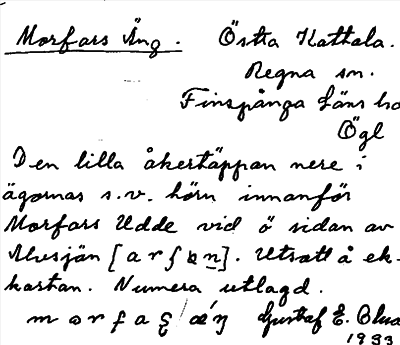 Morfars Äng. Östra Kattala.
Regna sn.
Finspånga Läns
Ögl
Den lilla åkertäppan nere i
ägornas s.v. hörn innanför
Morfars Udde vid ö sidan av
Avusjän [ ]. Utsatt å ek-
kartan. Numera utlagd.
Gustaf E.
1933